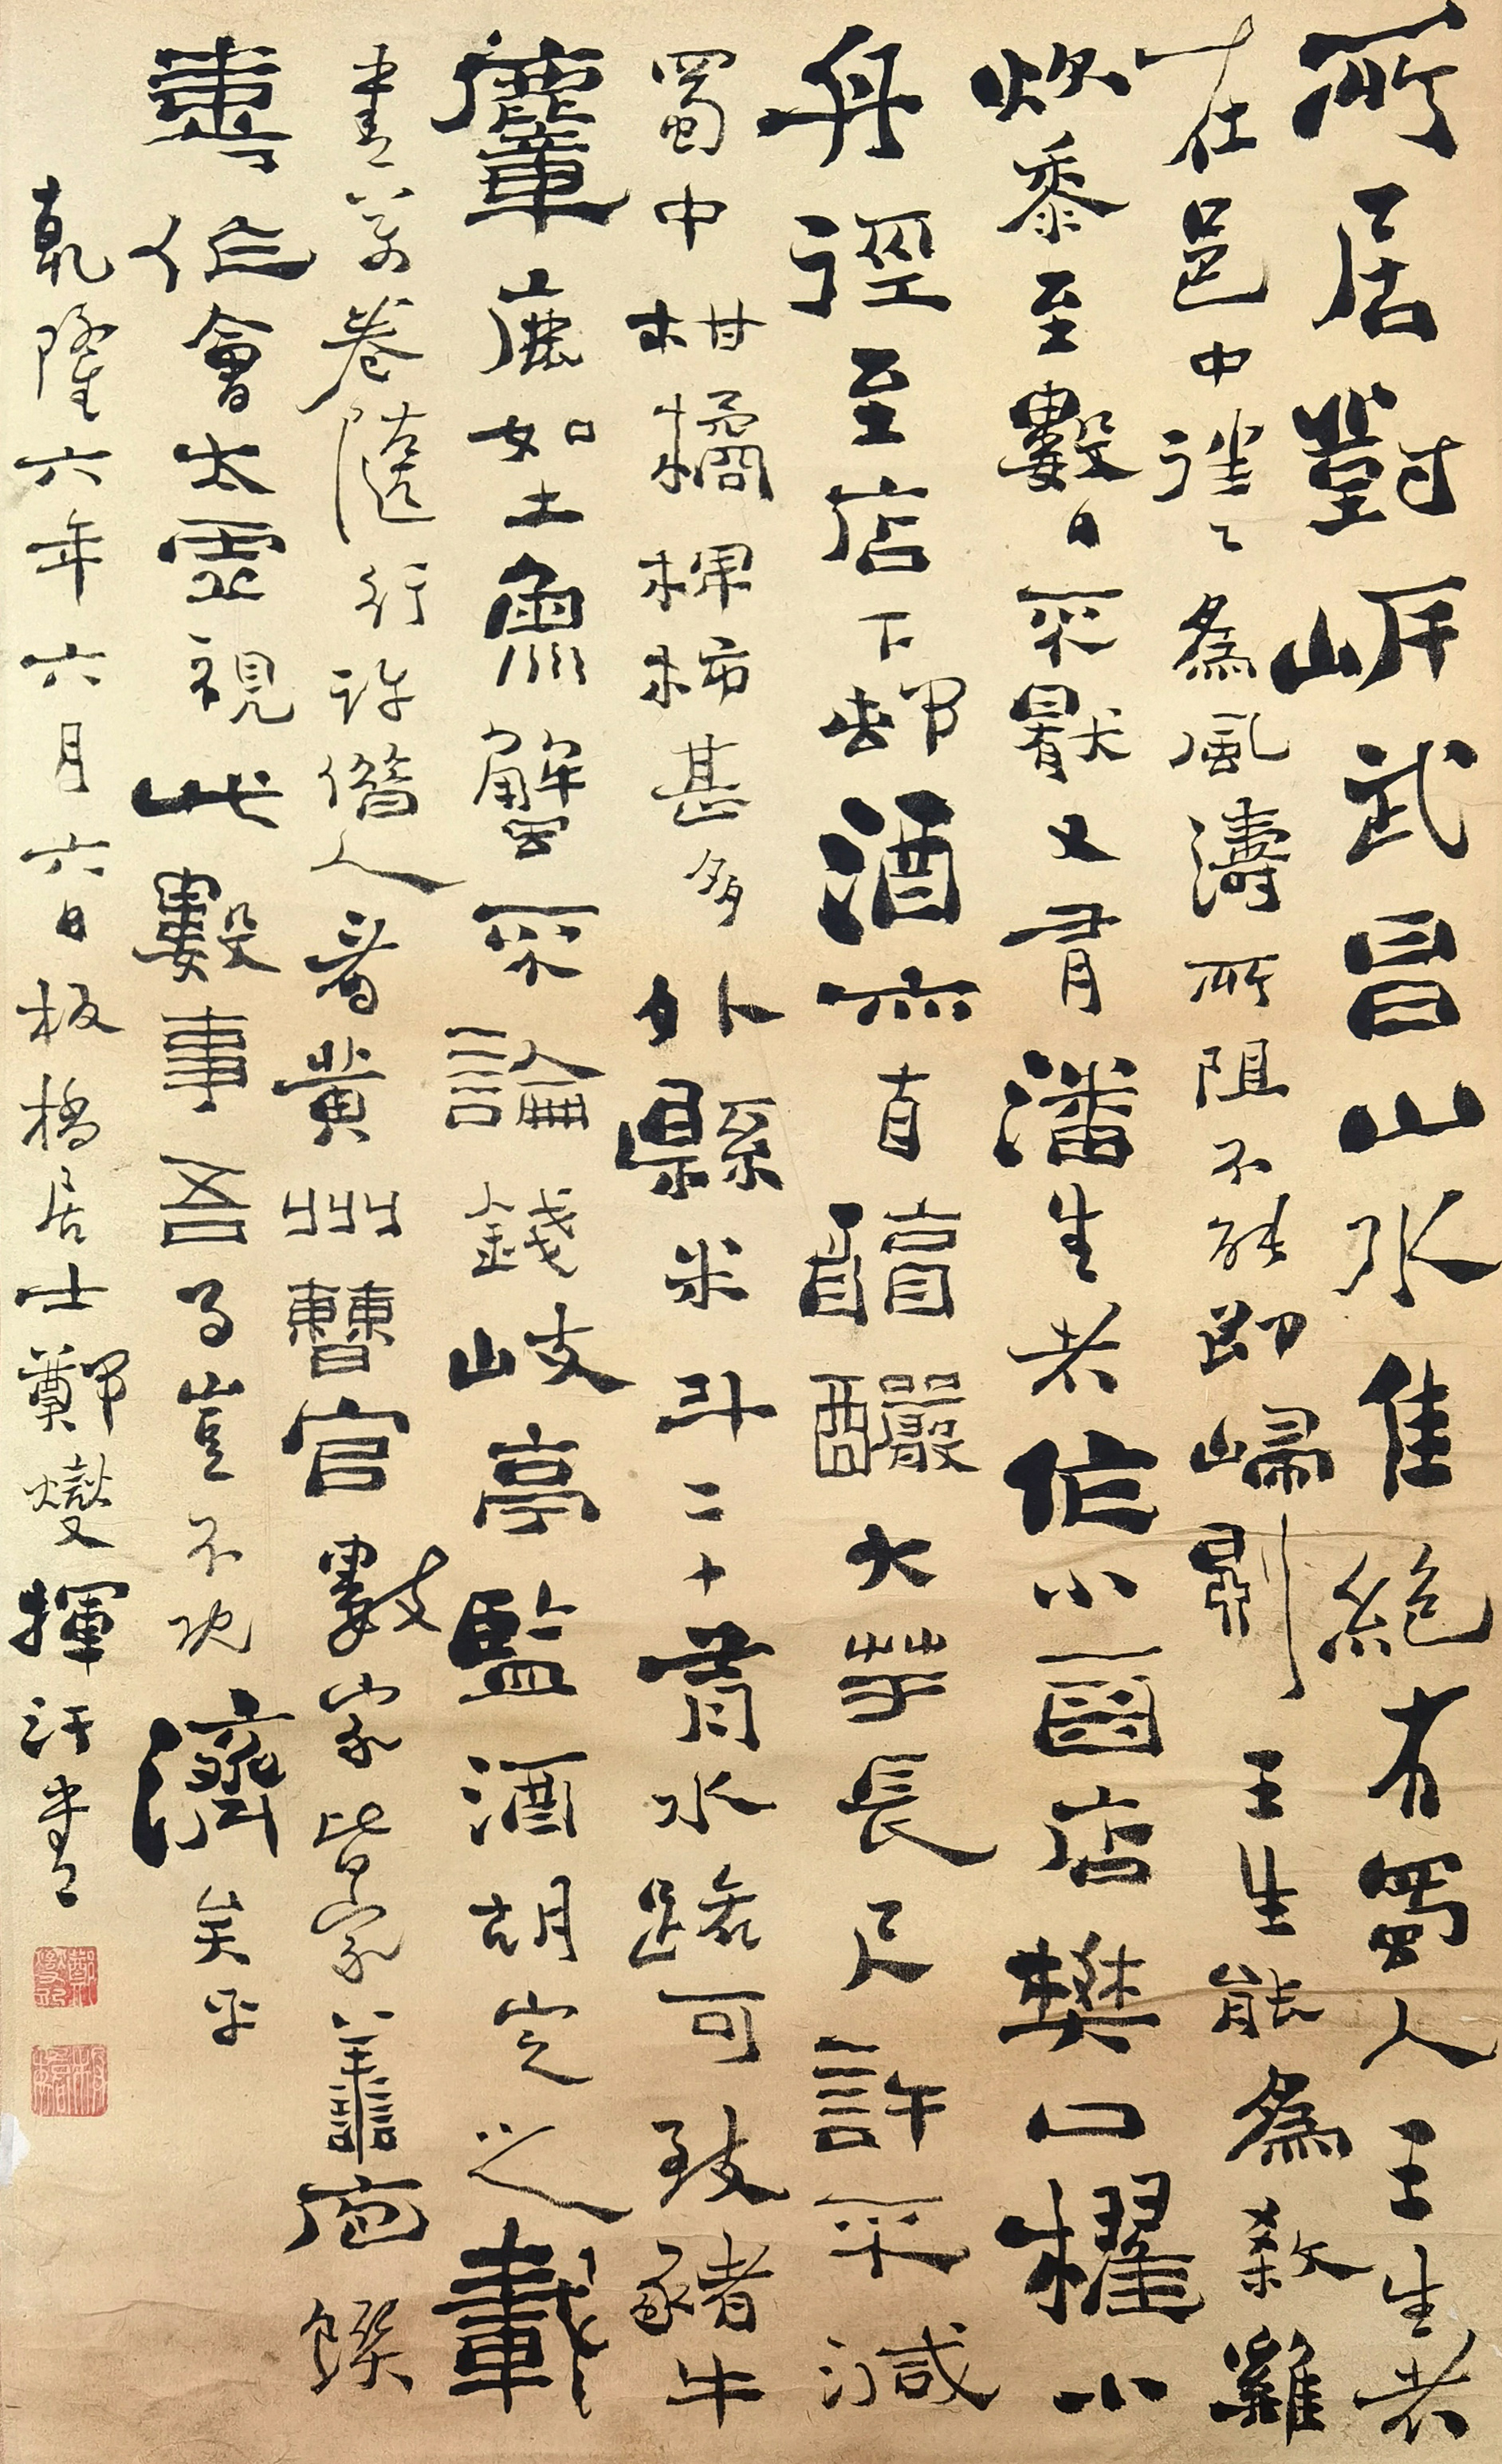 所居對岸武昌山水佳絕有蜀人王生者
在邑中往〻為風濤所阻不能即歸則王生能為殺雞
炊黍至數日不厭又有潘生者作小酉店樊口櫂小
舟徑至店下邨酒亦自醇釅大芋長尺許不減
蜀中柑橘椑柿甚多外縣米斗二十有水路可致豬牛
麞鹿如土魚蟹不論錢岐亭監酒胡定之載
書萬卷隨行許借人看黃州曹官數家皆家善庖饌
喜作會太虛視此數事吾事豈不既濟矣乎
乾隆六年六月六日板橋居士鄭燮揮汗書